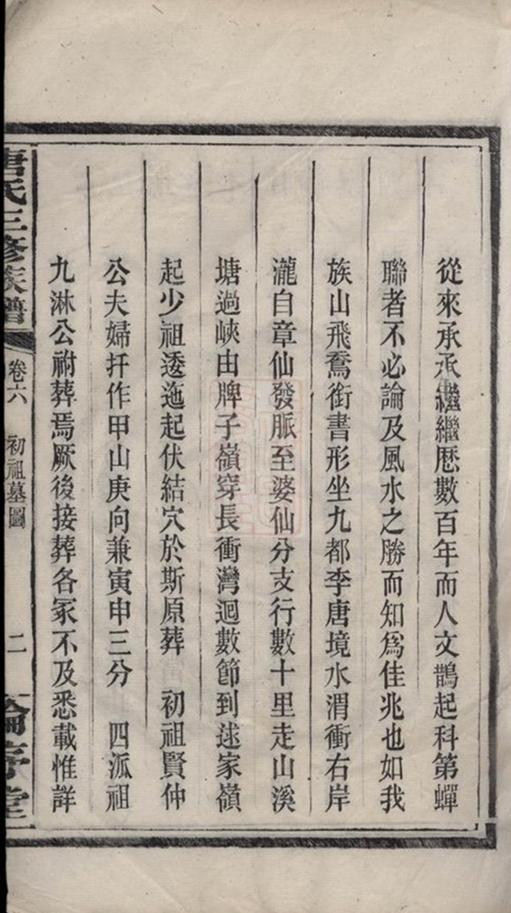 從來承承繼繼厯數百年而人文鵲起科第蟬
聯者不必論及風水之勝而知爲佳兆也如我
族山飛鶱銜書形坐九都李唐境水渭衝右岸
瀧白章仙發脈至婆仙分支行數十里走山溪
塘過峽由牌子嶺穿長衝灣迴數節到逑家嶺
起少祖逶迤起伏結穴於斯原葬 初祖賢仲
公夫婦扦作甲山庚向兼寅申三分 四派祖
九淋公祔葬焉厥後接葬各冢不及悉載惟詳
唐氏三修族譜 卷六 初祖墓圖 二 倫序堂